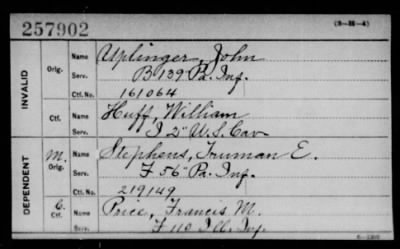 257902
(3-38-4)
INVALID
Orig.
Name Uplinger, John
Serv. B 139 Pa. Inf.
Ctf. No. 161064
Ctf.
Name Huff, William
Serv. I 2" U.S. Cav
DEPENDENT
M.
Orig.
Name Stephens, Truman E.
Serv. F 56" Pa. Inf.
Ctf. No. 219149
C.
Ctf.
Name Price, Francis M.
Serv. F 110 Ill. Inf.